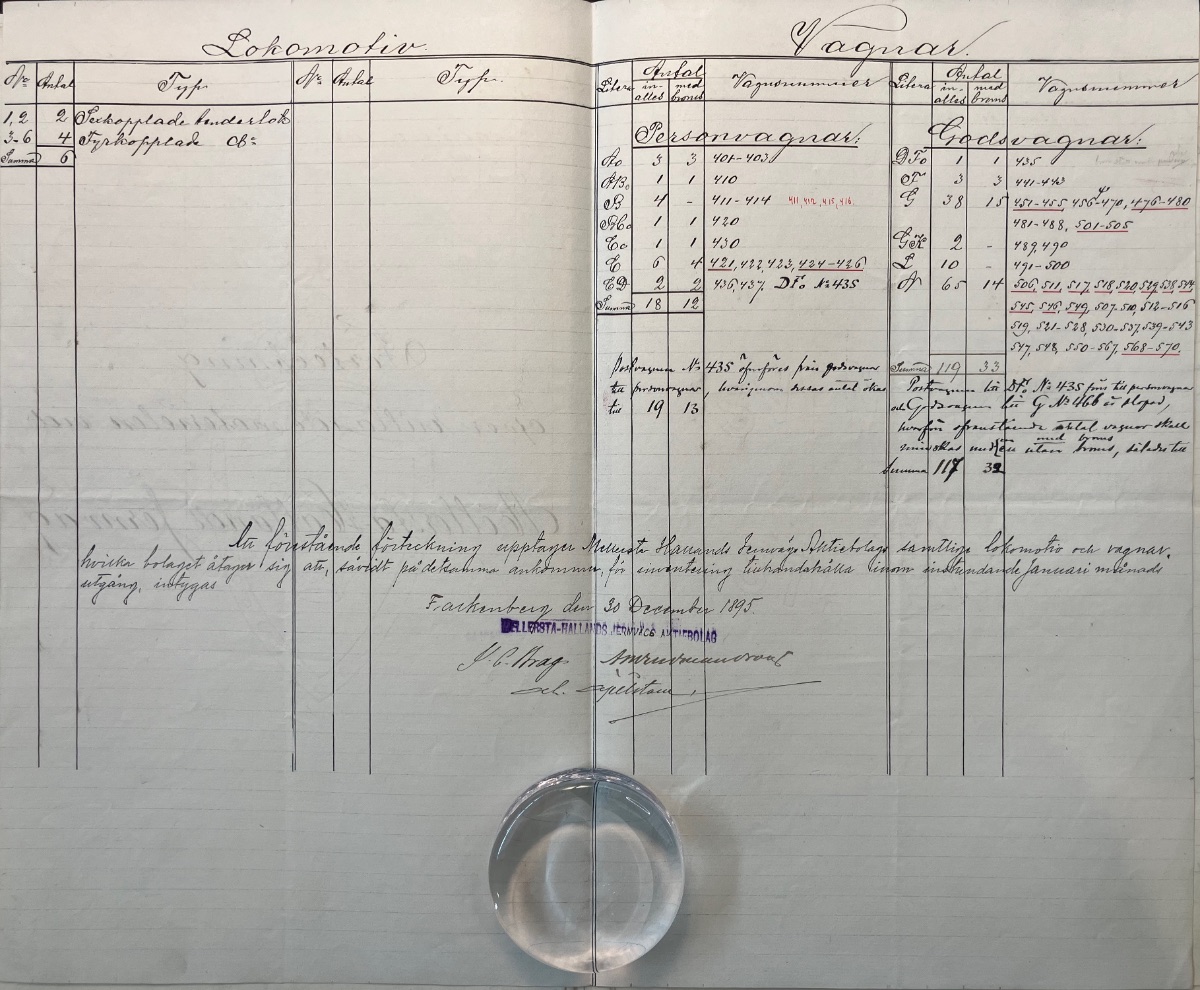 Lokomotiv.
Vagnar.
No Antal Typ. No Antal Typ.
Litera Antal Vagnsnummer Litera Antal Vagnsnummer
in- med in- med
alles broms alles broms
1,2 2 Sexkopplade tenderlok
3-6 4 Fyrkopplade do
Summa 6
Personvagnar:
Ao 3 3 401-403
ABo 1 1 410
B 4 - 411-414 411, 412, 415, 416.
BCo 1 1 420
Co 1 1 430
C 6 4 421, 422, 423, 424-426
CD 2 2 436, 437, DFo No 435
Summa 18 12
Postvagnen No 435 öfverföres från godsvagnar
till personvagnar, hvarigenom dessas antal ökas
till 19 13
Godsvagnar:
DFo 1 1 435
F 3 3 441-443
G 38 15 451-455, 456-470, 476-480
481-488, 501-505
GK 2 - 489, 490
L 10 - 491-500
N 65 14 506, 511, 517, 518, 520, 529, 538, 544
545, 546, 549, 507-510, 512-516
519, 521-528, 530-537, 539-543
547, 548, 550-567, 568-570.
Summa 119 33
Postvagnen litt DFo No 435 förs till personvagnar
och Godsvagnen litt G No 466 är slopad,
hvarför ofvanstående antal vagnar skall
minskas med en med broms
en utan broms, således till
Summa 117 32
Att förestående förteckning upptager Mellersta Hallands Jernvägs Aktiebolags samtliga lokomotiv och vagnar,
hvilka bolaget åtager sig att, såvidt på detsamma ankommer, för inventering tillhandahålla inom instundande Januari månads
utgång, intygas
Falkenberg den 30 December 1895.
MELLERSTA-HALLANDS JERNVÄGS AKTIEBOLAG